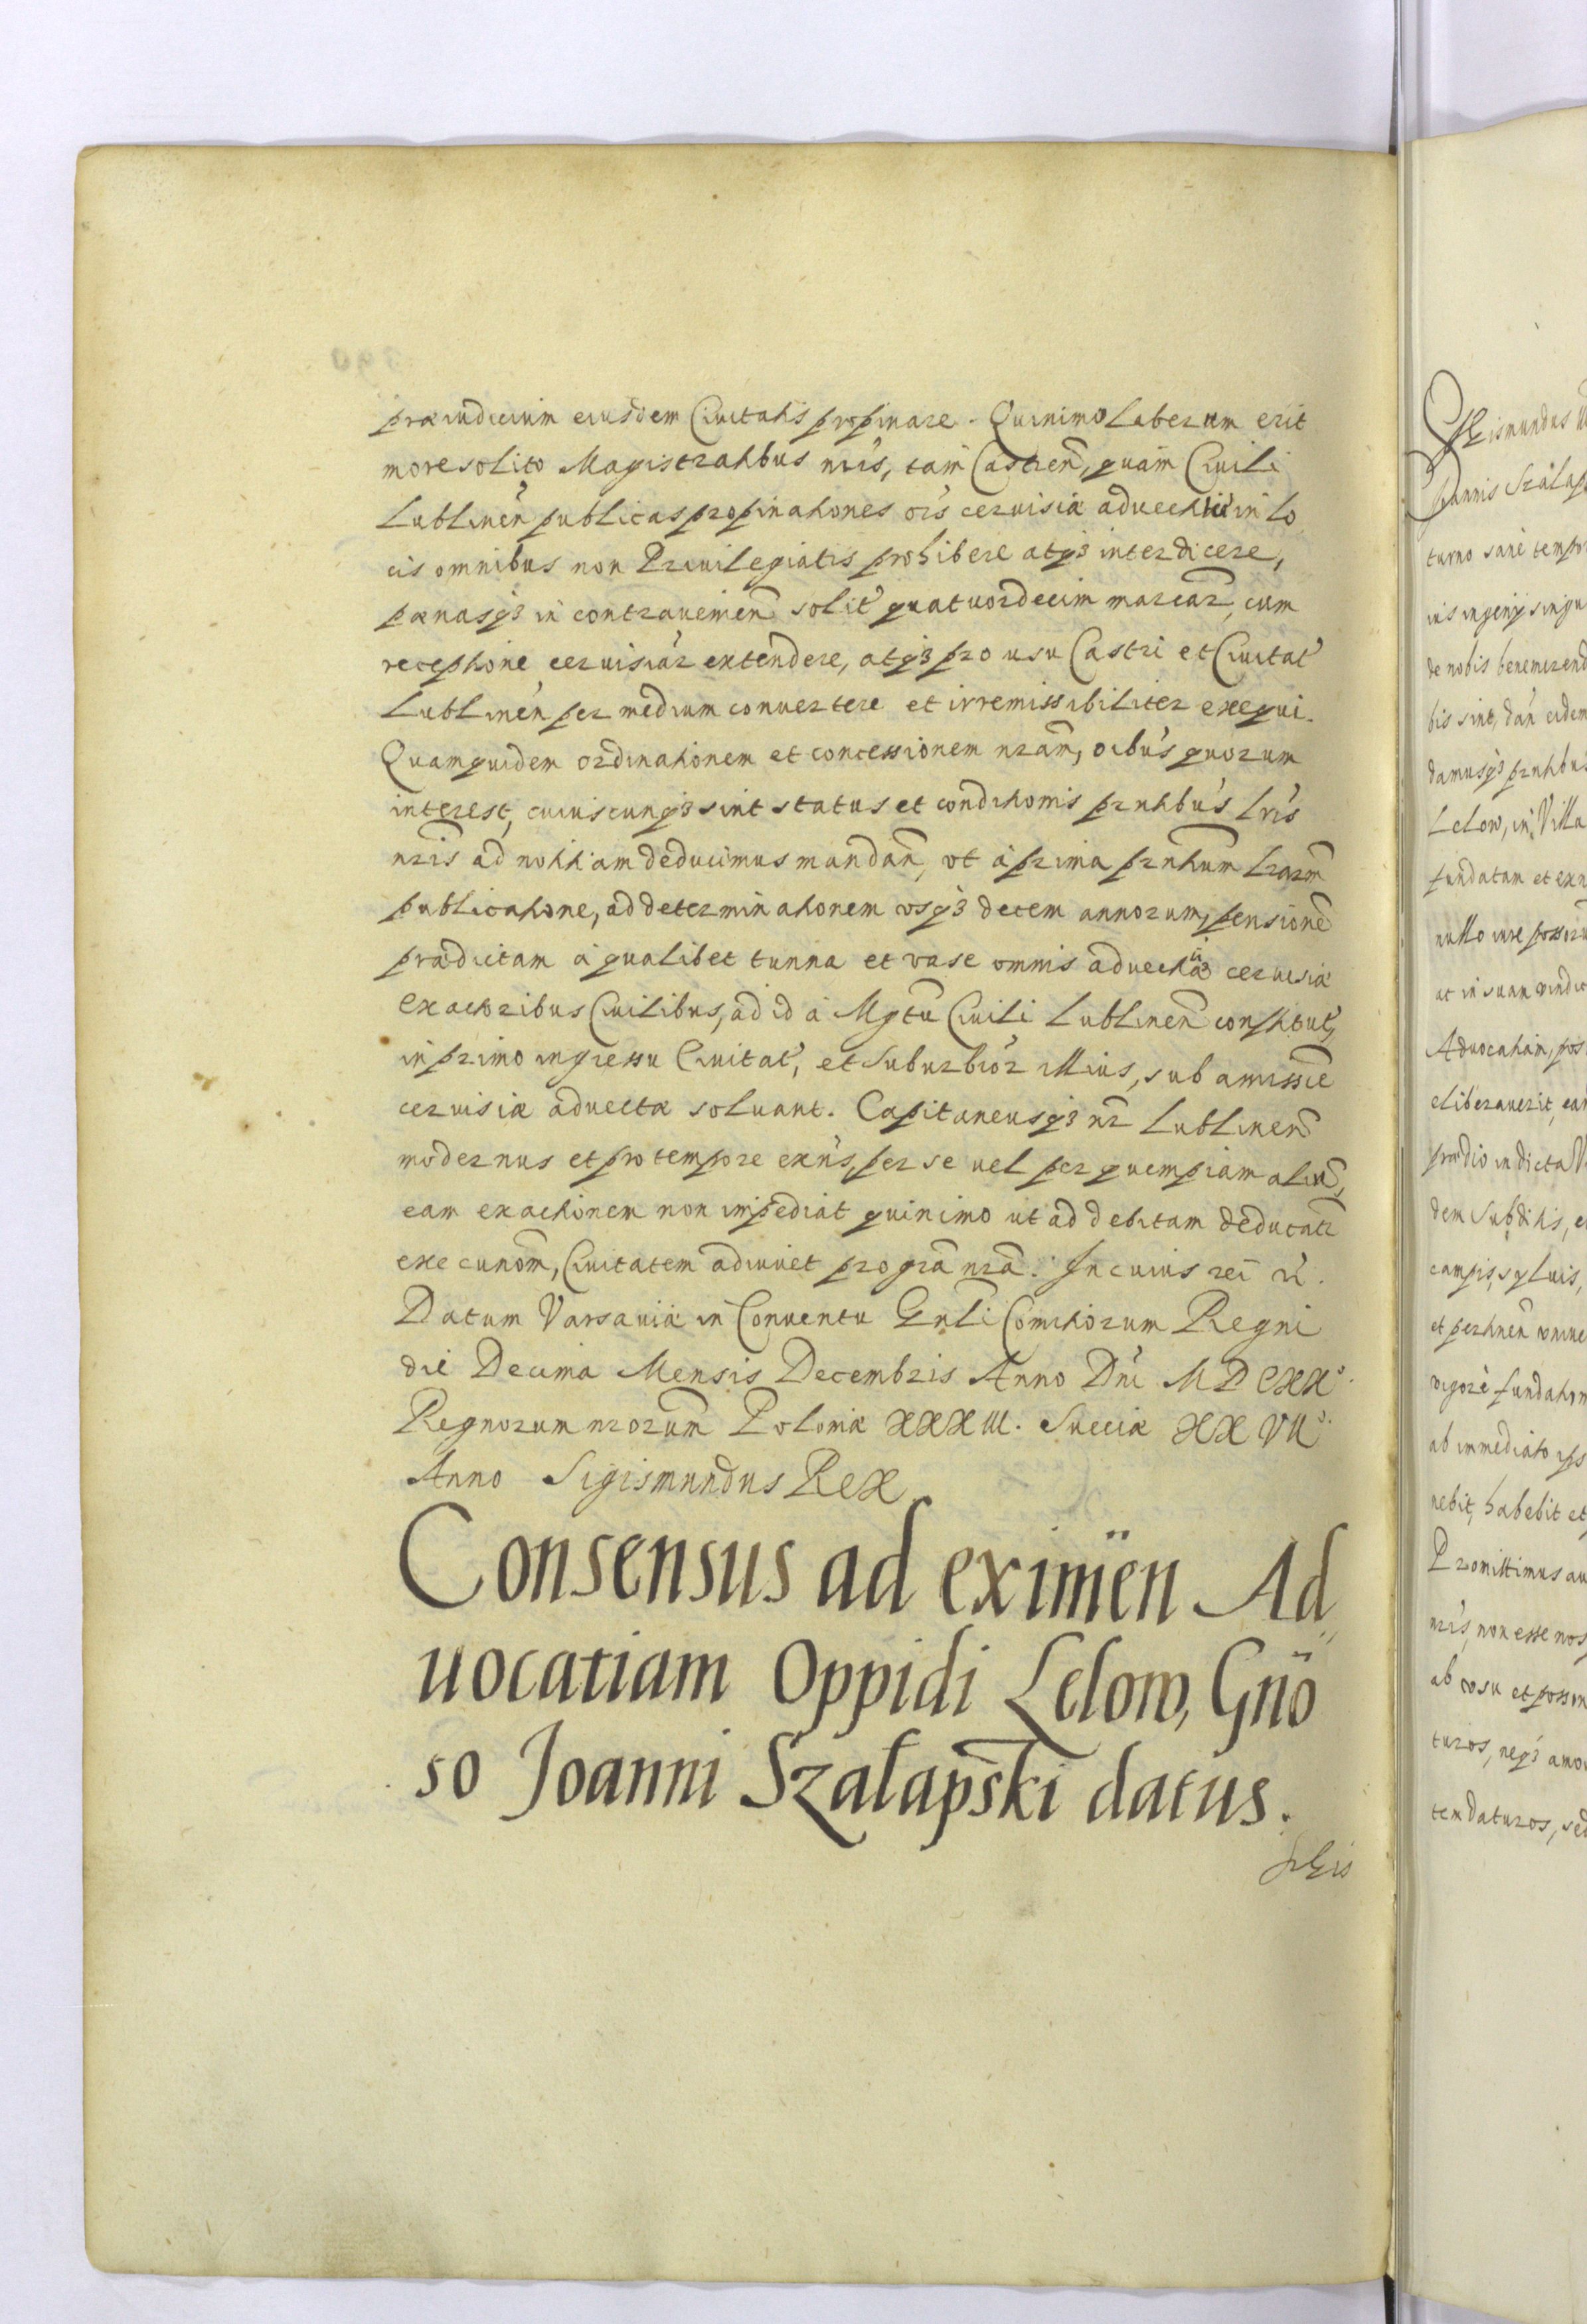 præiudicium eiusdem Ciuitatis propinare. Quinimo Liberum erit
more solito Magistratibus nris, tam Castren, quam Ciuili
Lublinen publicas propinationes ois ceruisiæ aduectitiæ in lo
cis omnibus non Priuilegiatis prohibere atq3 interdicere,
pænasq3 in contrauenien solit quatuordecim marcar, cum
receptione ceruisiar extendere, atq3 pro usu Castri et Ciuitat
Lublinen per medium conuertere et irremissibiliter exequi.
Quamquidem ordinationem et concessionem nram, oibus quorum
interest, cuiuscunq3 sint status et conditionis prntibus Lris
nris ad notitiam deducimus mandan, vt à prima prntium Lrarm
publicatione, ad determinationem vsq3 decem annorum, pensione
prædictam à qualibet tunna et vase omnis aduectitiæ ceruisiæ
exactoribus Ciuilibus, ad id à Mgtu Ciuili Lublinen constitut,
in primo ingressu Ciuitat, et Suburbior illius, sub amissie
ceruisiæ aduectæ soluant. Capitaneusq3 nr Lublinen
modernus et pro tempore exns, per se uel per quempiam aliu,
eam exactionem non impediat quinimo ut ad debitam deducatr
execunom, Ciuitatem adiuuet pro gra nra. In cuius rei
Datum Varsauiæ in Conuentu Gnli Comitiorum Regni
die Decima Mensis Decembris Anno Dni MDCXXo.
Regnorum nrorum Poloniæ XXXIII. Sueciæ XXVIIo.
Anno Sigismundus Rex
Consensus ad eximen Ad„
uocatiam Oppidi Lelow, Gno
so Joanni Szalapski datus.
Sigis
Sigismundus
Joannis Szalap
turno sane tempor
uis ingenij singu
de nobis benemerend
bis sint, dan eidem
damusq3 prntibus
Lelow, in Villa
fundatam et
nullo iure
at in suam vindic
Aduocatiam, pos
eliberauerit, eam
prædio in dicta V
dem Subditis, e
campis, syluis,
et pertinen omne
vigore fundation
ab immediato ips
nebit, habebit et
Promittimus au
nris, non esse nos
ab vsu et possess
turos, neq3 amo
tem daturos, sed